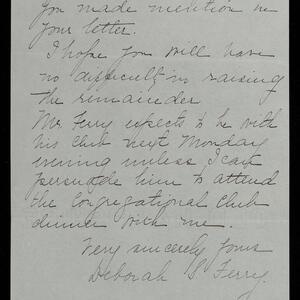 you made mention in
your letter.
I hope you will have
no difficulty in raising
the remainder
Mr. Ferry expects to be with
his club next Monday
evening unless I can
persuade him to attend
the Congregational Club
dinner with me.
Very sincerely yours
Deborah S. Ferry.